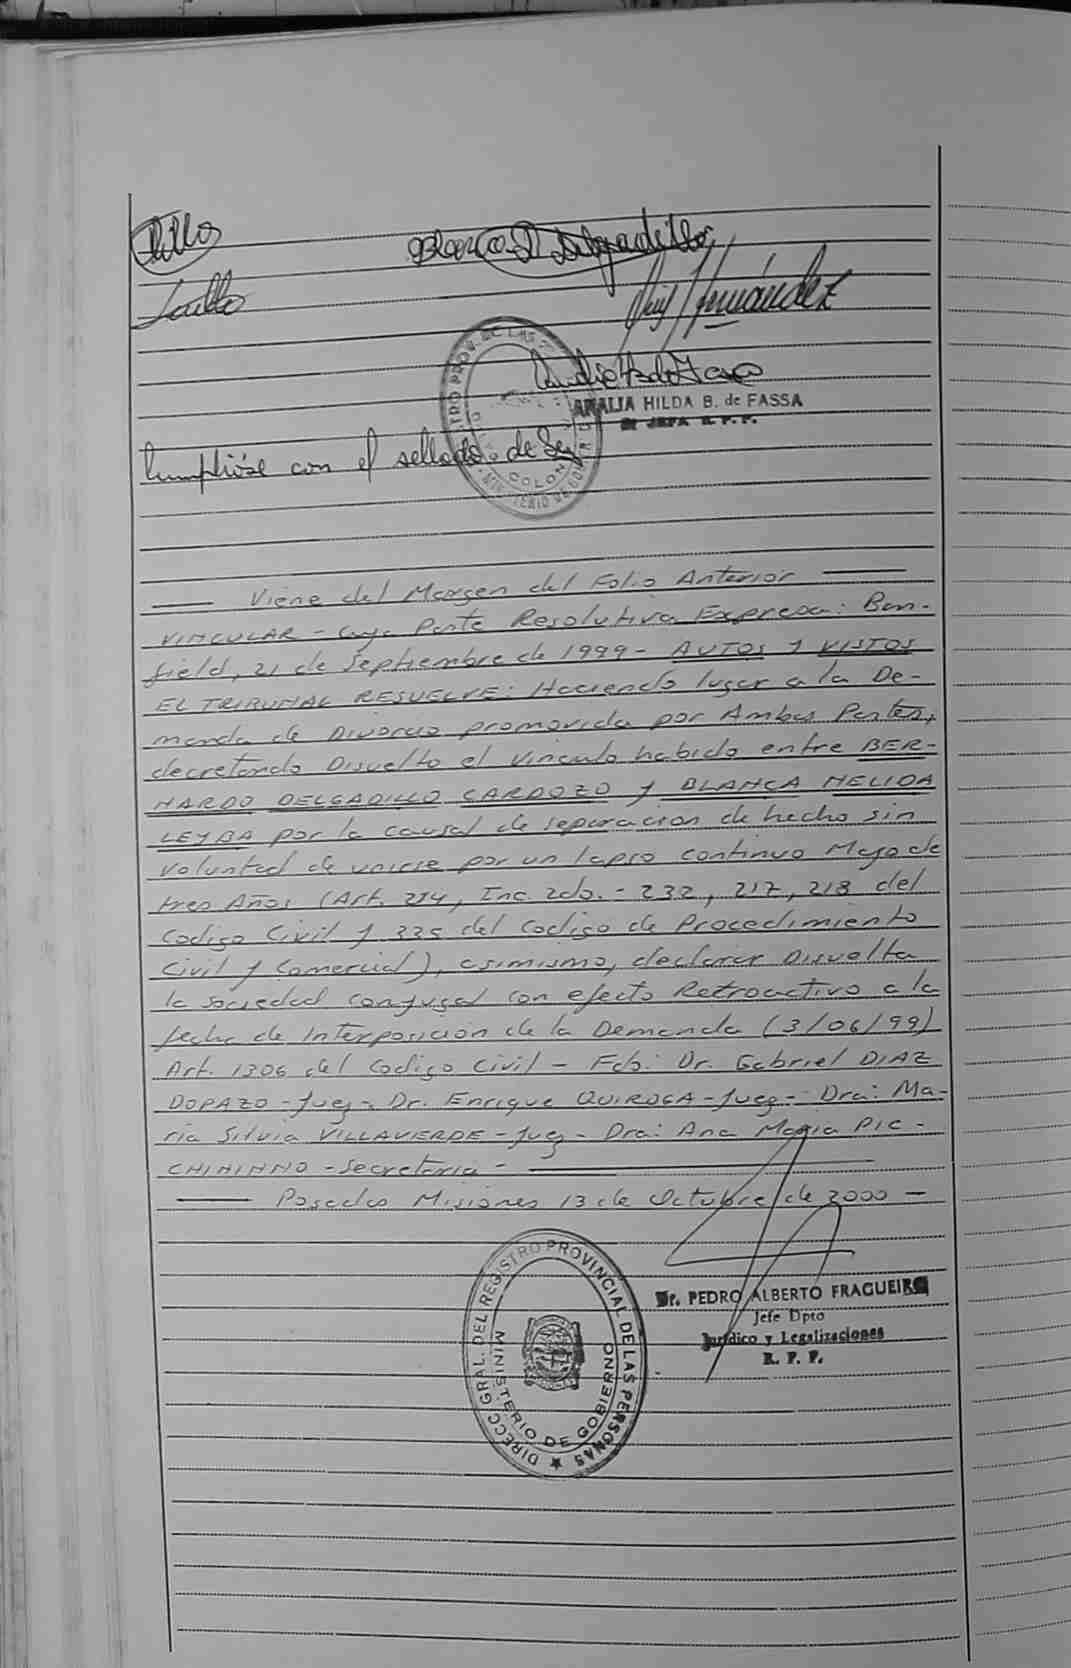 Blanca D Delgadillo
Hernández
AMALIA HILDA B. de FASSA
JEFA R. P. P.
COLON
Cumplióse con el sellado de Ley
Viene del Margen del Folio Anterior
VINCULAR - Cuya Parte Resolutiva Expresa: Ban-
field, 21 de Septiembre de 1999 - AUTOS Y VISTOS
EL TRIBUNAL RESUELVE: Haciendo lugar a la De-
manda de Divorcio promovida por Ambas Partes,
decretando Disuelto el Vinculo habido entre BER-
NARDO DELGADILLO CARDOZO y BLANCA NELIDA
LEYBA por la causal de separacion de hecho sin
voluntad de unirse por un lapso continuo Mayo de
tres Años (Art. 214, Inc. 2do. - 232, 217, 218 del
Codigo Civil y 335 del Codigo de Procedimiento
Civil y Comercial), asimismo, declarar Disuelta
la Sociedad Conyugal con efecto Retroactivo a la
fecha de Interposición de la Demanda (3/06/99)
Art. 1306 del Codigo Civil - Fdo: Dr. Gabriel DIAZ
DOPAZO - Juez - Dr. Enrique QUIROGA - Juez - Dra: Ma-
ria Silvia VILLAVERDE - Juez - Dra: Ana Maria PIC-
CHININNO - Secretaria -
Posadas Misiones 13 de Octubre de 2000 -
DIRECC. GRAL. DEL REGISTRO PROVINCIAL DE LAS PERSONAS
MINISTERIO DE GOBIERNO
Dr. PEDRO ALBERTO FRAGUEIRO
Jefe Dpto
Jurídico y Legalizaciones
R. P. P.